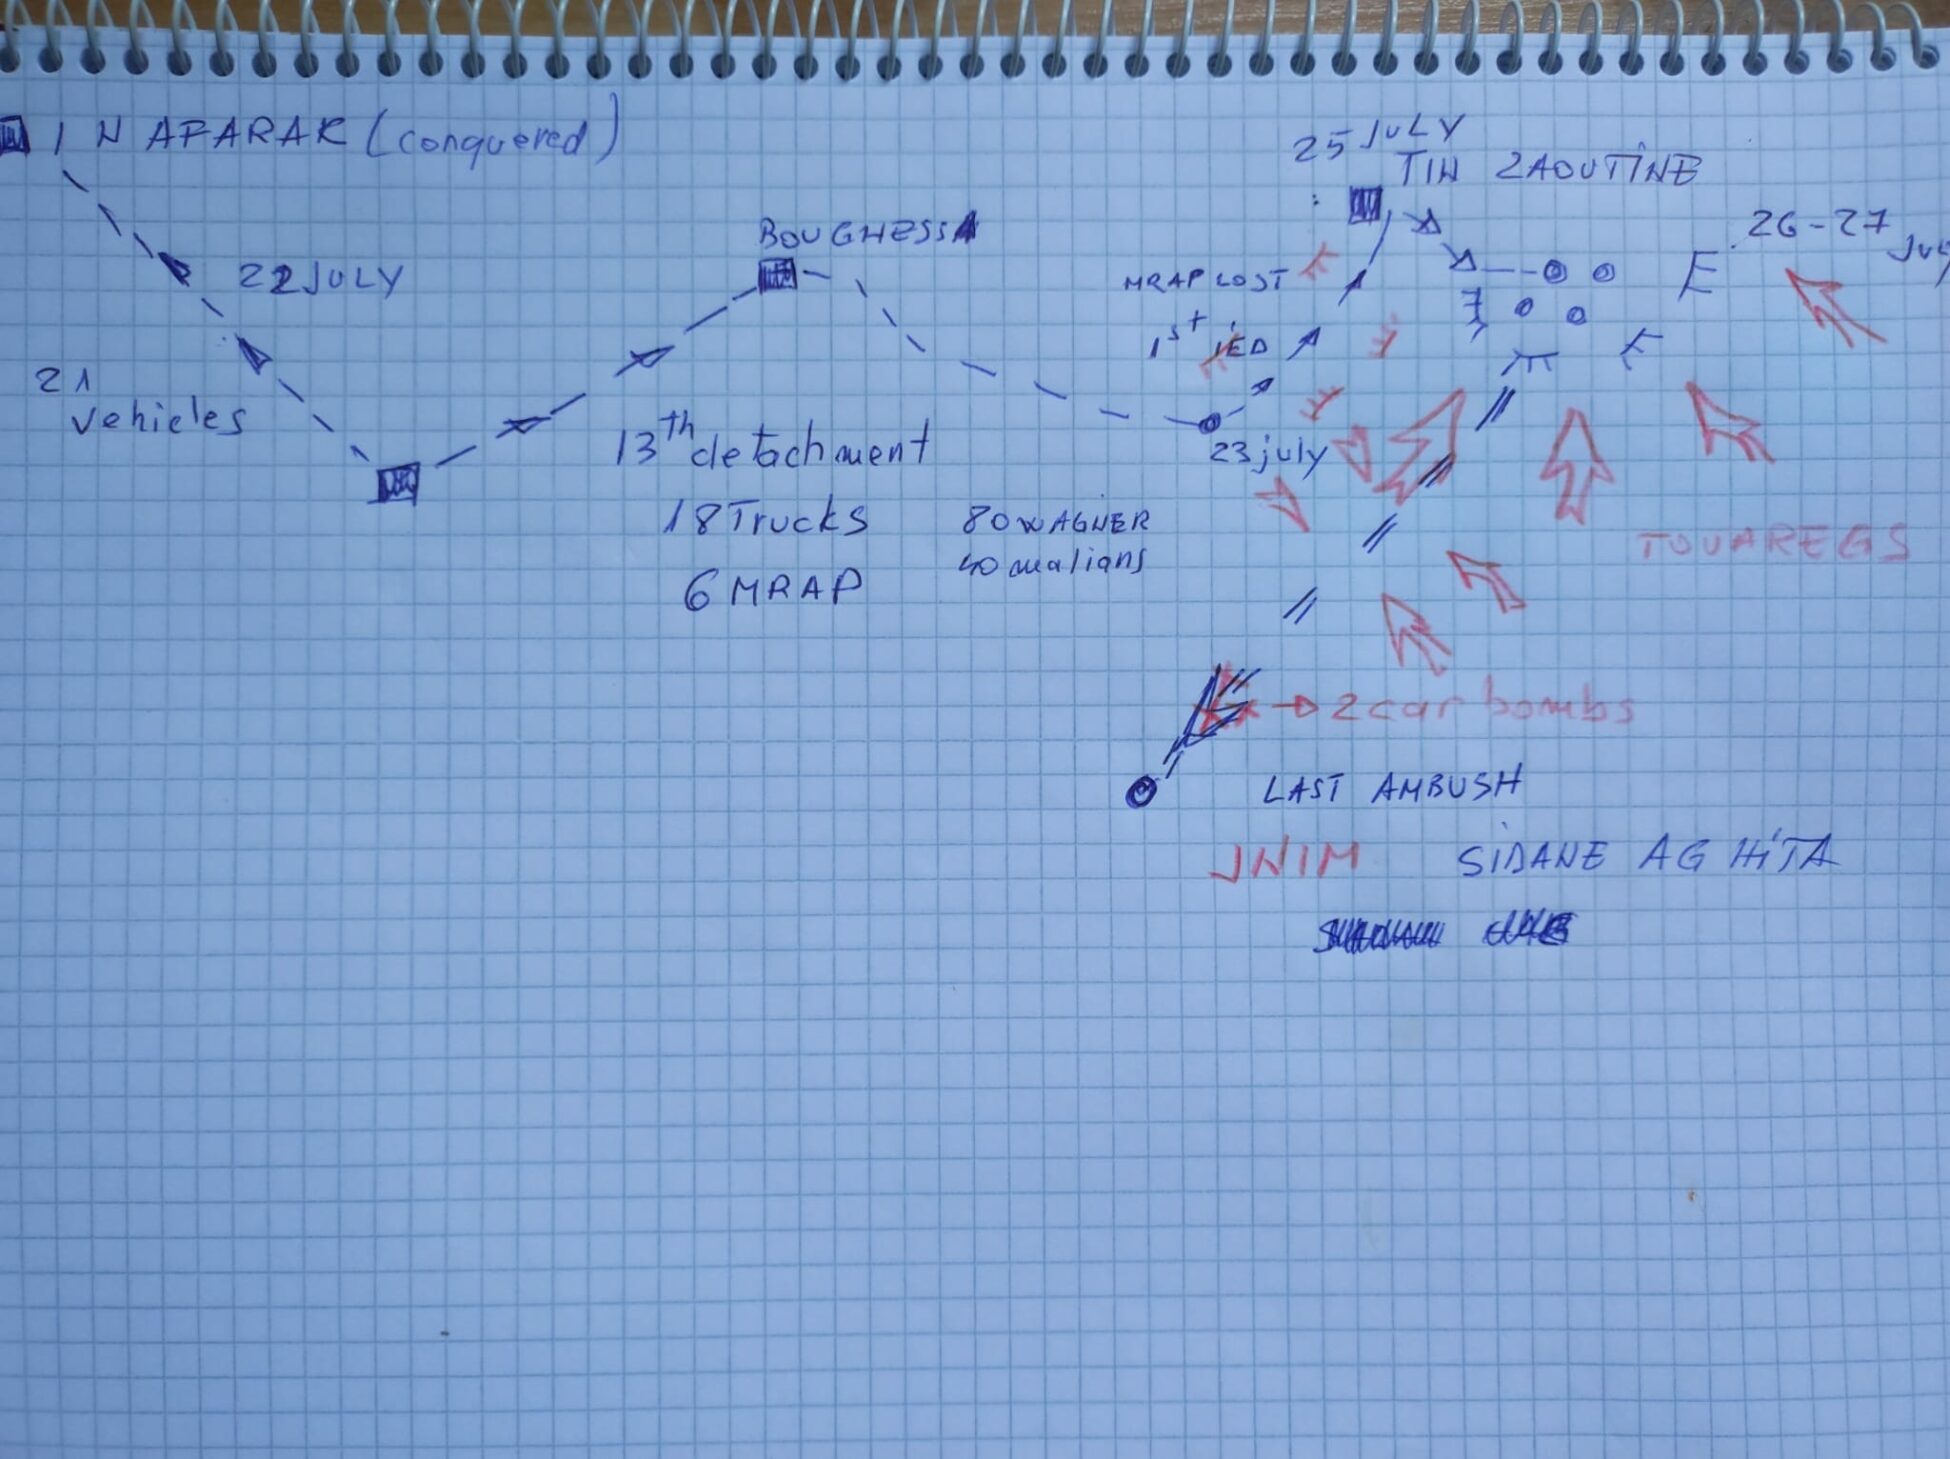 IN AFARAK (conquered)
22 JULY
21
vehicles
BOUGHESSA
13th detachment
18 Trucks
6 MRAP
80 WAGNER
40 malians
25 JULY
TIN ZAOUTINE
26-27
July
MRAP LOST
1st IED
23 july
TOUAREGS
2 car bombs
LAST AMBUSH
JNIM SIDANE AG HITA